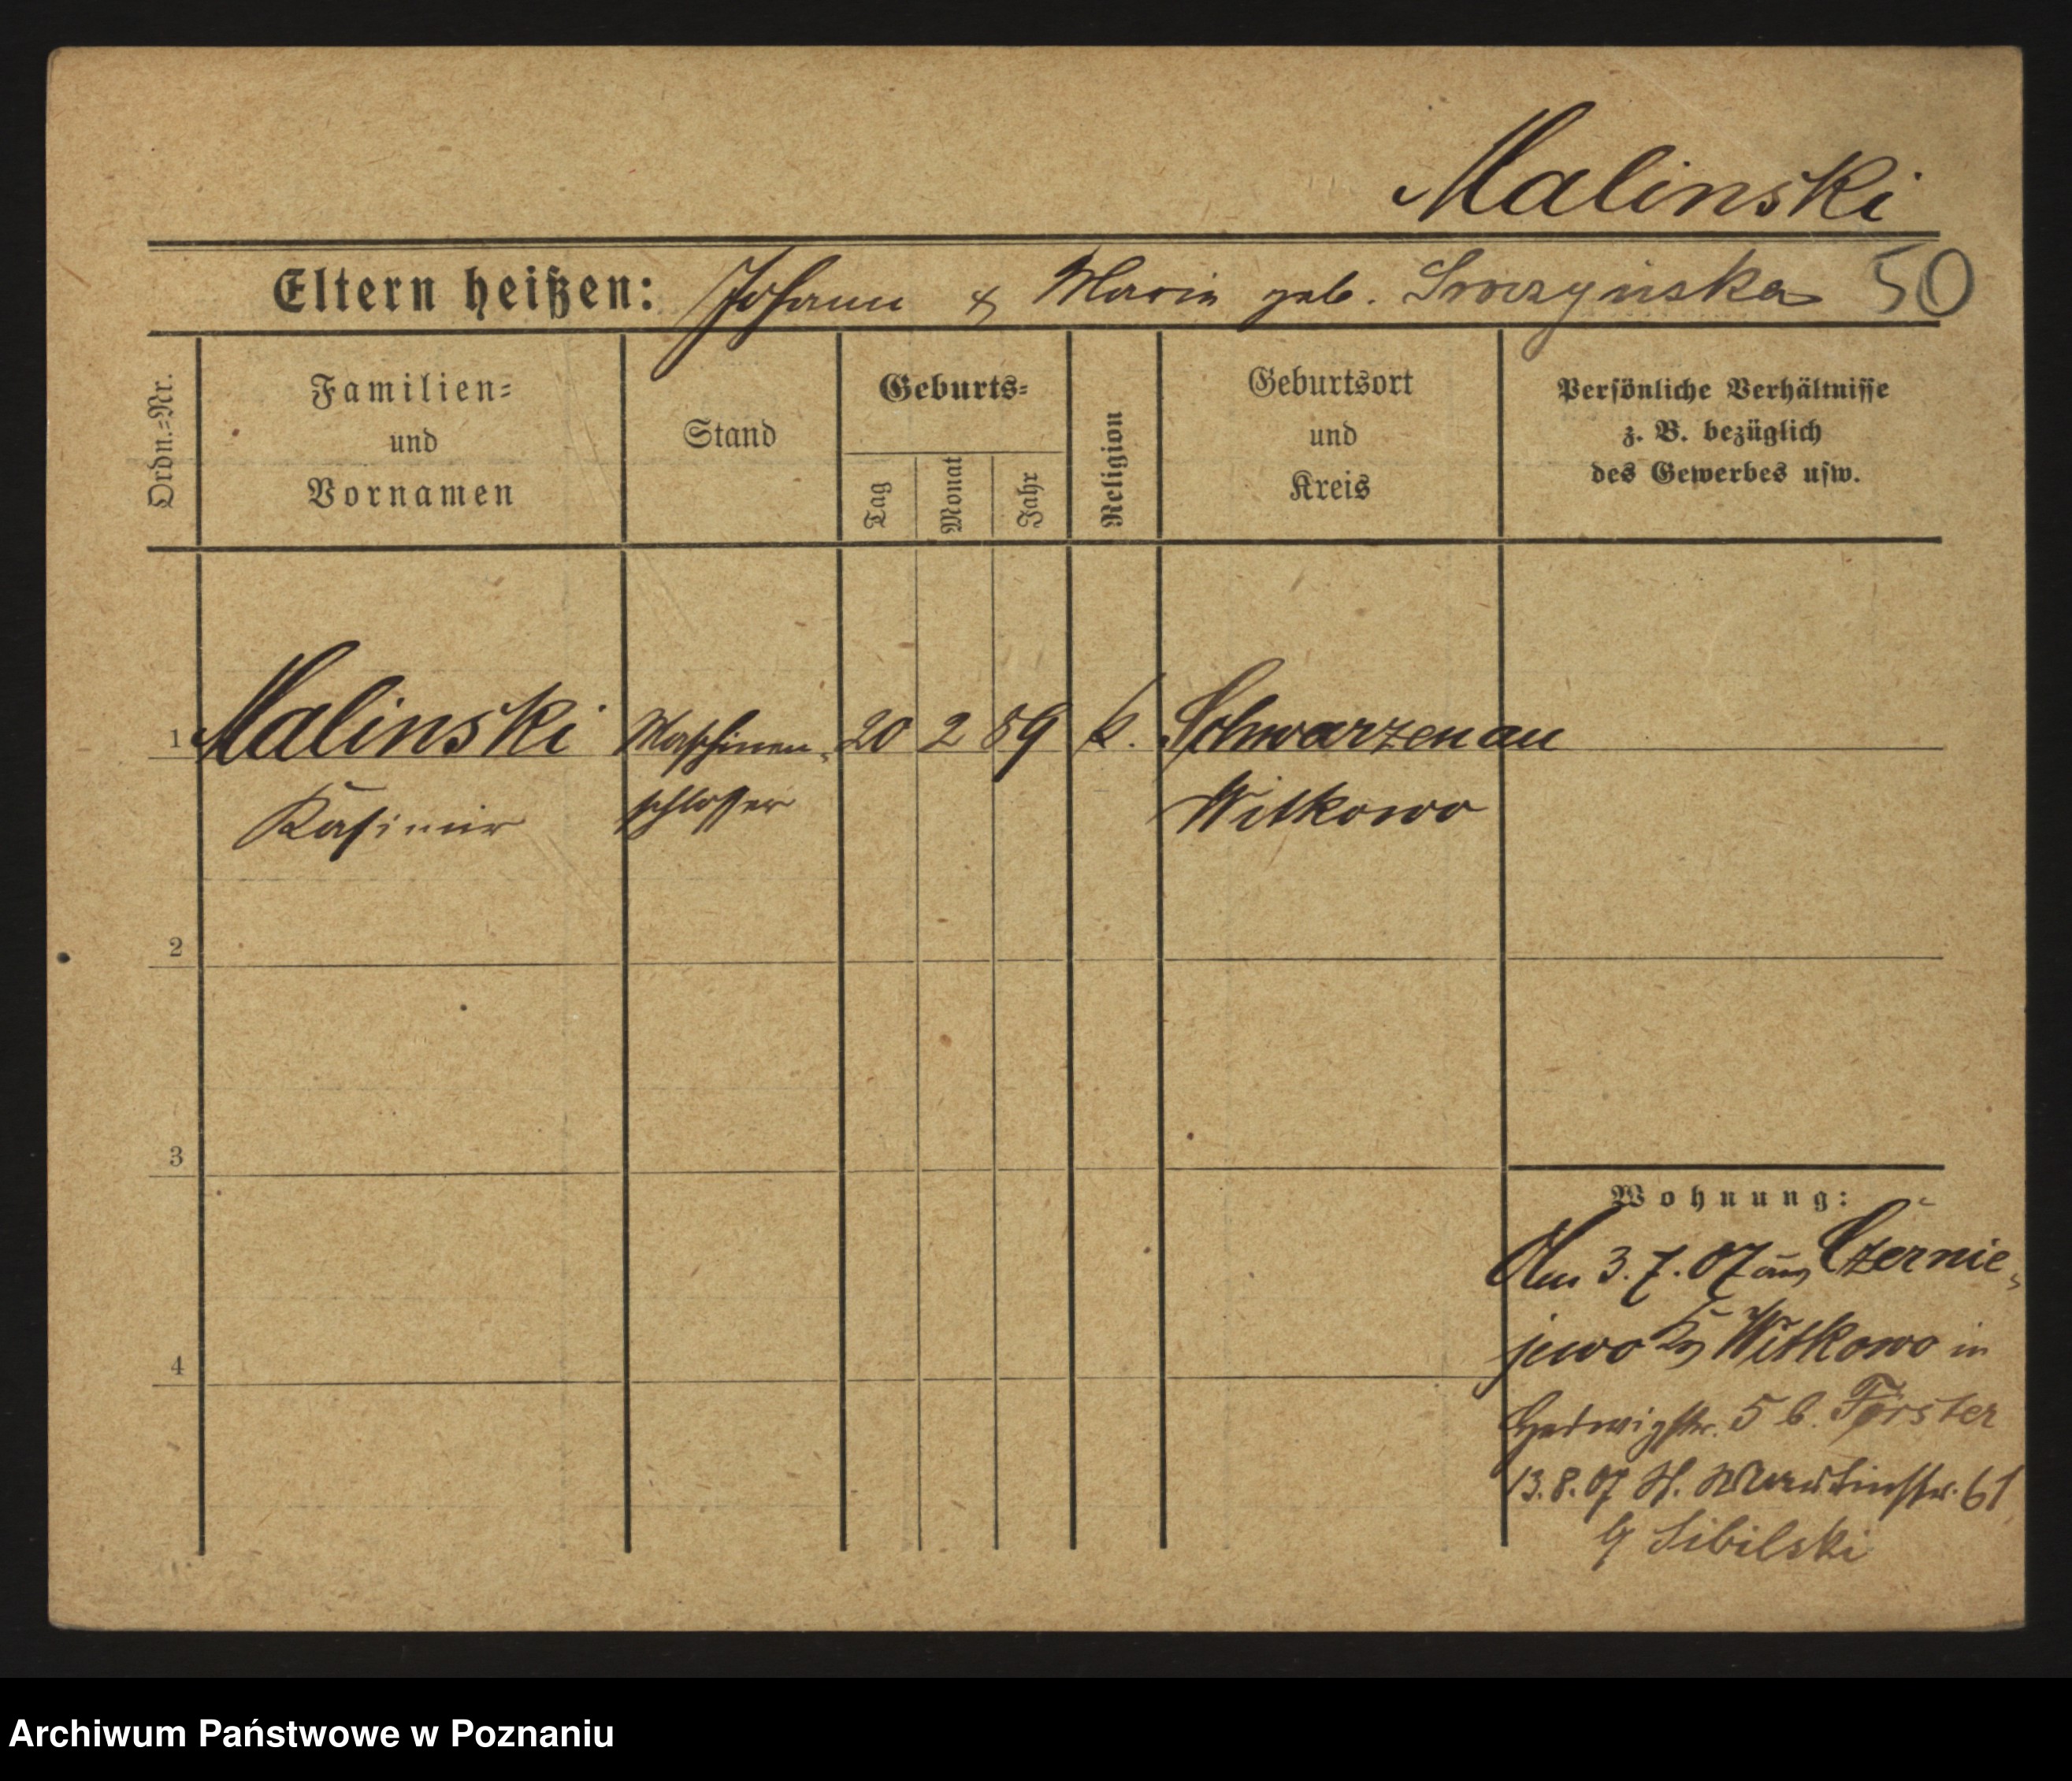 Malinski
Eltern heißen: Johann & Maria geb. 50
Ordn.=Nr.
Familien=
und
Vornamen
Stand
Geburts=
Tag
Monat
Jahr
Religion
Geburtsort
und
Kreis
Persönliche Verhältnisse
z. B. bezüglich
des Gewerbes usw.
1 Malinski Maschinen- 20 2 89 k. Schwarzenau
Kasimir schlosser Witkowo
2
3
4
Wohnung:
Am 3.7.07 aus Czernie-
jewo Kr Witkowo in
Hedwigstr. 5 b. Förster
13.8.07 St. Martinstr. 61
b Sibilski
Archiwum Państwowe w Poznaniu